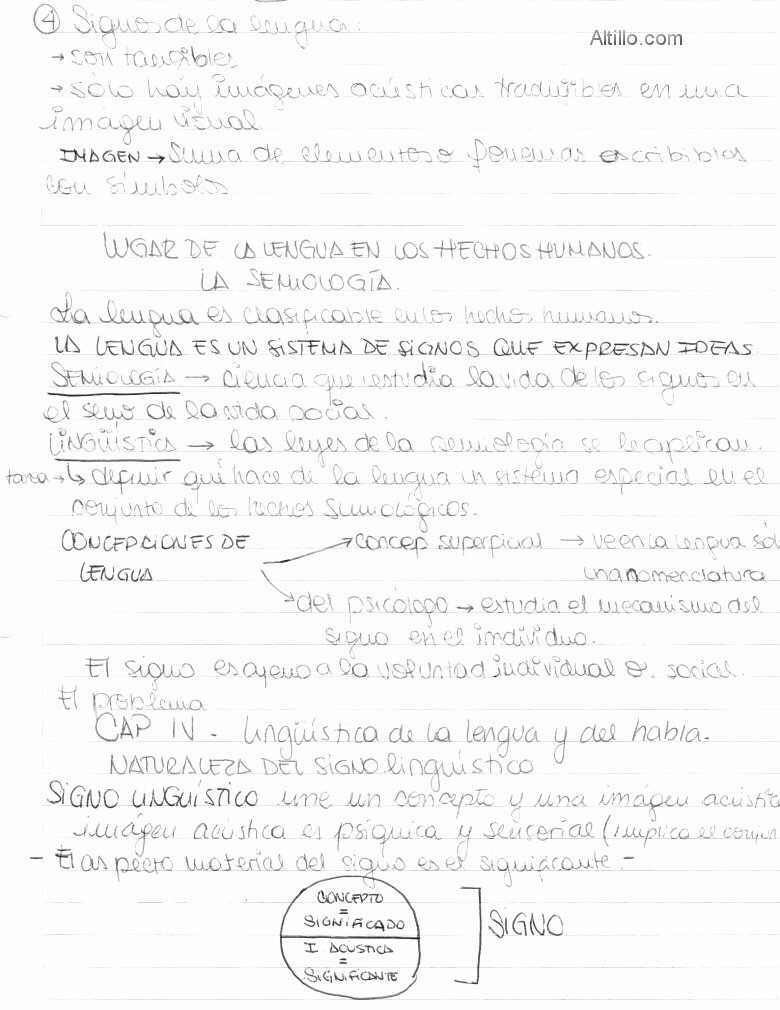 ④ Signos de la lengua:
Altillo.com
→ son tangibles
→ sólo hay imágenes acústicas traducibles en una
imágen visual
IMAGEN → Suma de elementos o fonemas escribibles
con símbolos
LUGAR DE LA LENGUA EN LOS HECHOS HUMANOS.
LA SEMIOLOGÍA.
La lengua es clasificable en los hechos humanos.
LA LENGUA ES UN SISTEMA DE SIGNOS QUE EXPRESAN IDEAS
SEMIOLOGÍA → ciencia que estudia la vida de los signos en
el seno de la vida social.
LINGÜÍSTICA → las leyes de la semiología se le aplican.
tarea → ↳ definir qué hace de la lengua un sistema especial en el
conjunto de los hechos semiológicos.
CONCEPCIONES DE
LENGUA
→ concep superficial → ve en la lengua sól
una nomenclatura
→ del psicólogo → estudia el mecanismo del
signo en el individuo.
El signo es ajeno a la voluntad individual o social.
El problema
CAP IV - Lingüística de la lengua y del habla.
NATURALEZA DEL SIGNO lingüístico
SIGNO LINGUÍSTICO une un concepto y una imágen acústica
imágen acústica es psíquica y sensorial (implica el
- El aspecto material del signo es el significante -
CONCEPTO
=
SIGNIFICADO
I ACUSTICA
=
SIGNIFICANTE
SIGNO